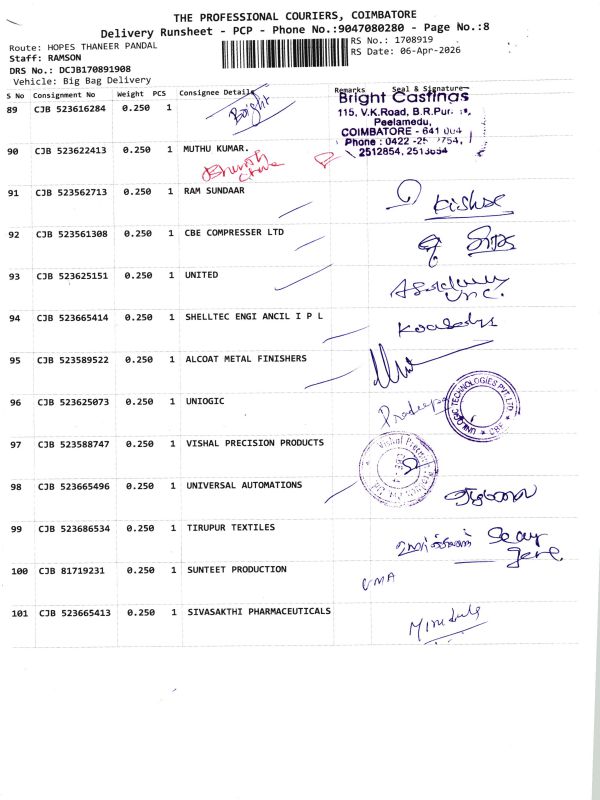 THE PROFESSIONAL COURIERS, COIMBATORE
Delivery Runsheet - PCP - Phone No.:9047080280 - Page No.:8
Route: HOPES THANEER PANDAL
RS No.: 1708919
Staff: RAMSON
RS Date: 06-Apr-2026
DRS No.: DCJB170891908
Vehicle: Big Bag Delivery
S No Consignment No Weight PCS Consignee Details Remarks Seal & Signature
89 CJB 523616284 0.250 1 Bright
Bright Castings
115, V.K.Road, B.R.Pur
Peelamedu,
COIMBATORE - 641 004
Phone : 0422
2512854,
90 CJB 523622413 0.250 1 MUTHU KUMAR.
91 CJB 523562713 0.250 1 RAM SUNDAAR
92 CJB 523561308 0.250 1 CBE COMPRESSER LTD
93 CJB 523625151 0.250 1 UNITED
94 CJB 523665414 0.250 1 SHELLTEC ENGI ANCIL I P L
95 CJB 523589522 0.250 1 ALCOAT METAL FINISHERS
96 CJB 523625073 0.250 1 UNIOGIC Pradeepa
UNILOGIC TECHNOLOGIES PVT LTD
CBE
97 CJB 523588747 0.250 1 VISHAL PRECISION PRODUCTS
Vishal Precision
98 CJB 523665496 0.250 1 UNIVERSAL AUTOMATIONS
99 CJB 523686534 0.250 1 TIRUPUR TEXTILES
100 CJB 81719231 0.250 1 SUNTEET PRODUCTION UMA
101 CJB 523665413 0.250 1 SIVASAKTHI PHARMACEUTICALS